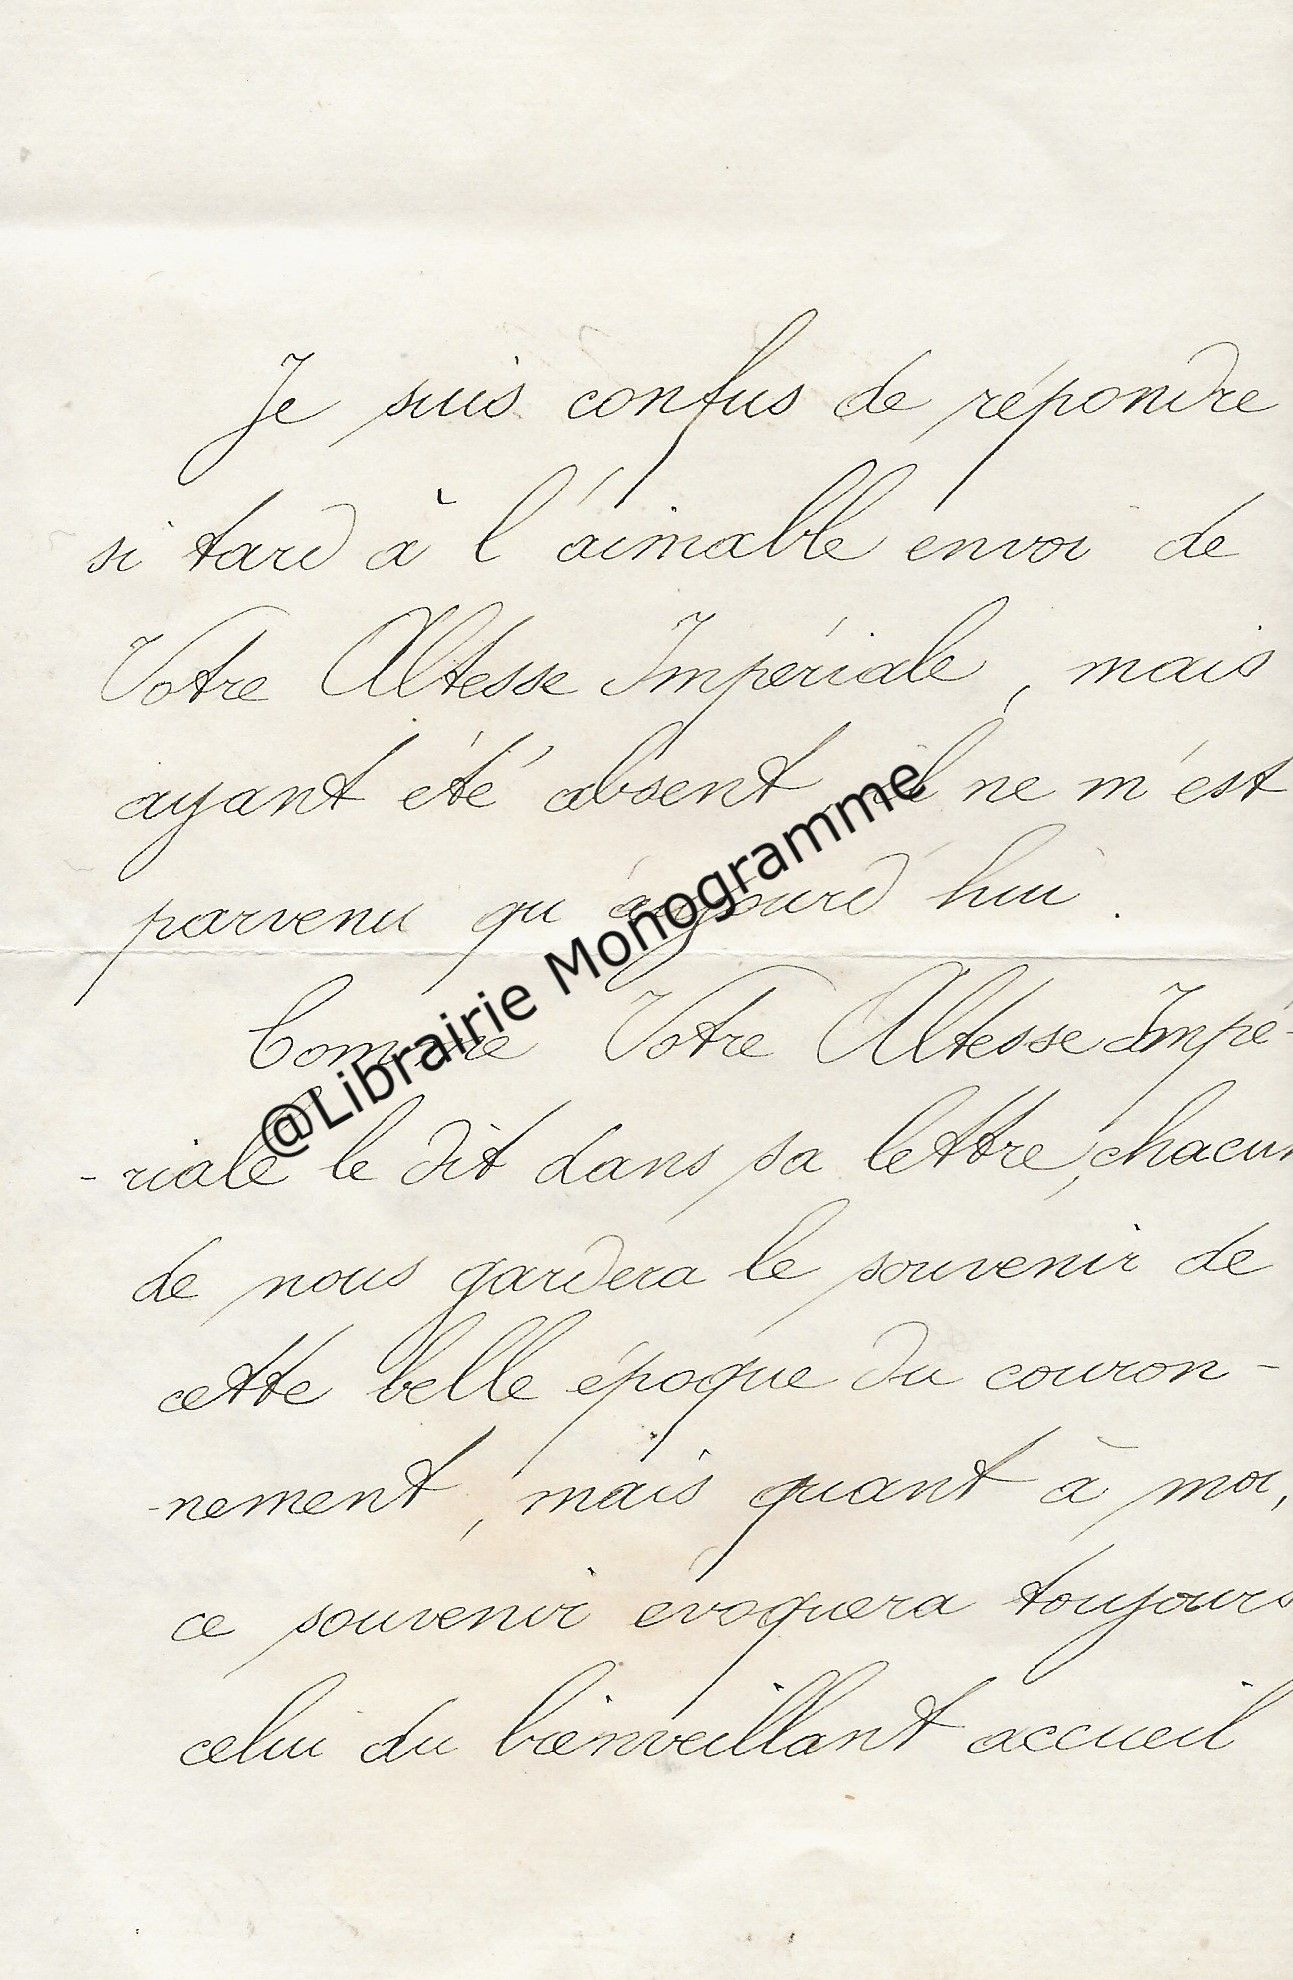 Je suis confus de répondre
si tard à l'aimable envoi de
Votre Altesse Impériale, mais
ayant été absent, il ne m'est
parvenu qu'aujourd'hui.
Comme Votre Altesse Impé-
-riale le dit dans sa lettre, chacun
de nous gardera le souvenir de
cette belle époque du couron-
-nement, mais quant à moi,
ce souvenir évoquera toujours
celui du bienveillant accueil
@Librairie Monogramme